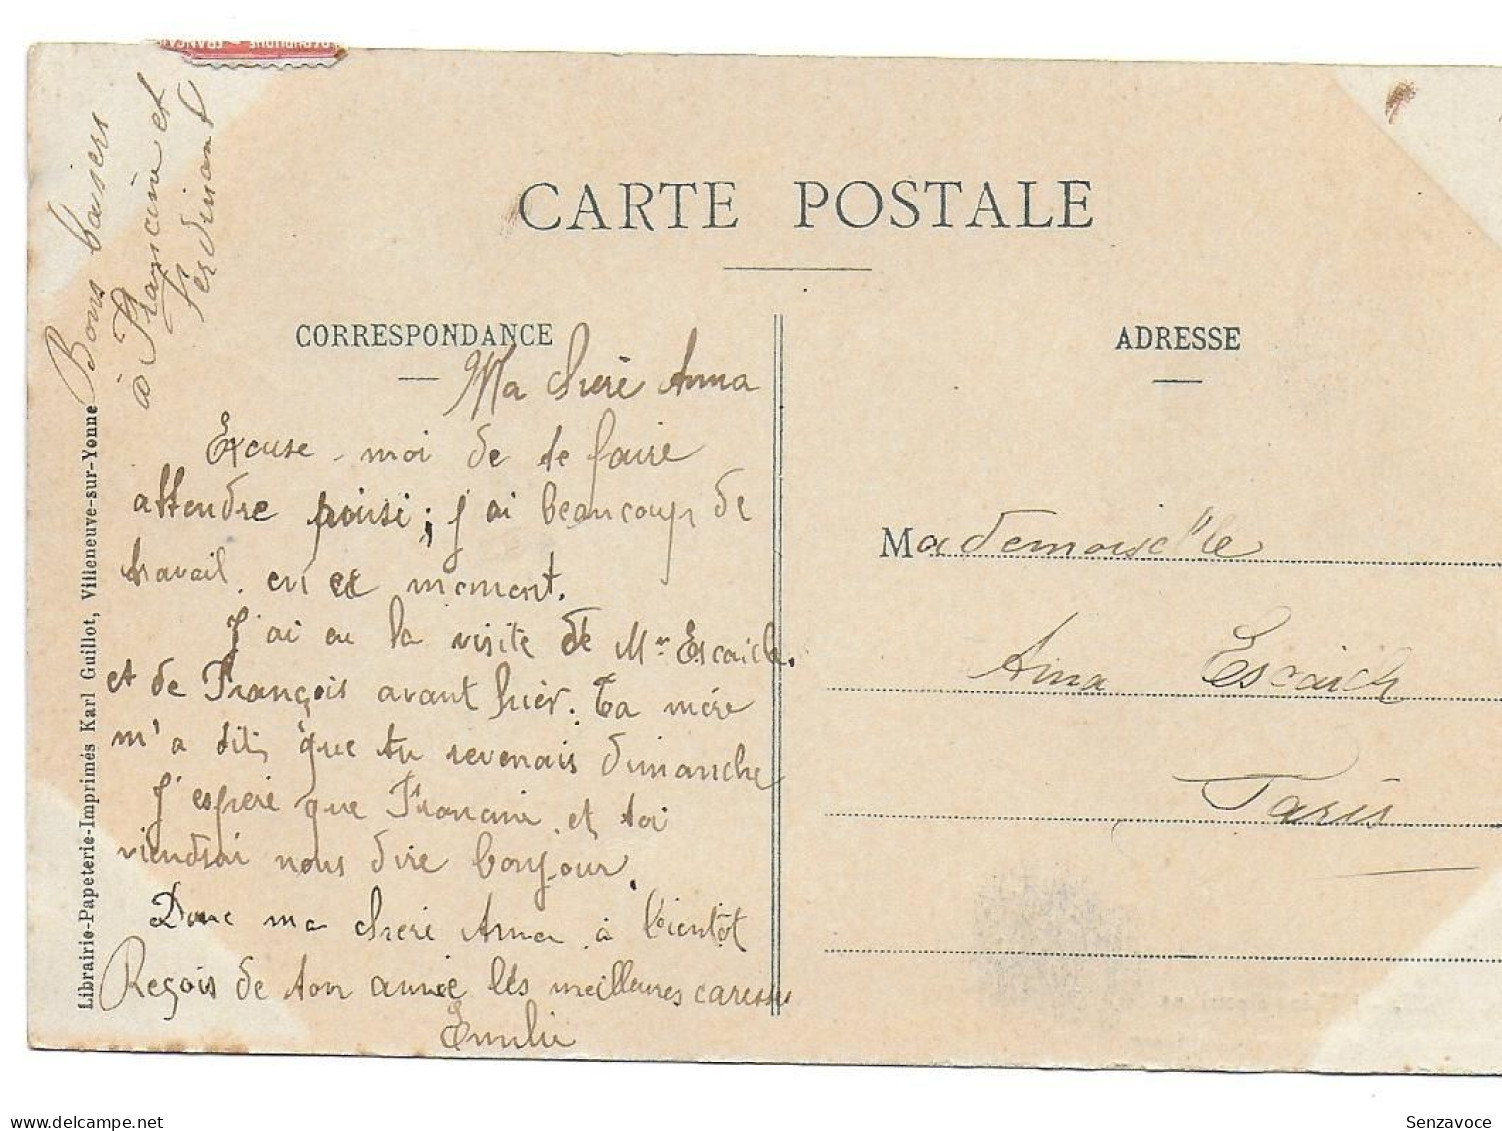 RÉPUBLIQUE - FRANÇAISE
CARTE POSTALE
CORRESPONDANCE
ADRESSE
Ma cheré Anna
Excuse-moi de te faire
attendre ; j'ai beaucoup de
travail. en ce moment.
J'ai eu la visite de Mr Escaich.
et de François avant hièr. Ta mère
m'a dit que tu revenais dimanche
J'esperé que Francine et toi
viendrai nous dire bonjour.
Donc ma cheré Anna à bientôt
Reçois de ton amie lés meilleures caresses
Emilie
Bons baisers
à Francine et
Ferdinand
Mademoiselle
Anna Escaich
Paris
Librairie-Papeterie-Imprimés Karl Guillot, Villeneuve-sur-Yonne
Senzavoce
delcampe.net